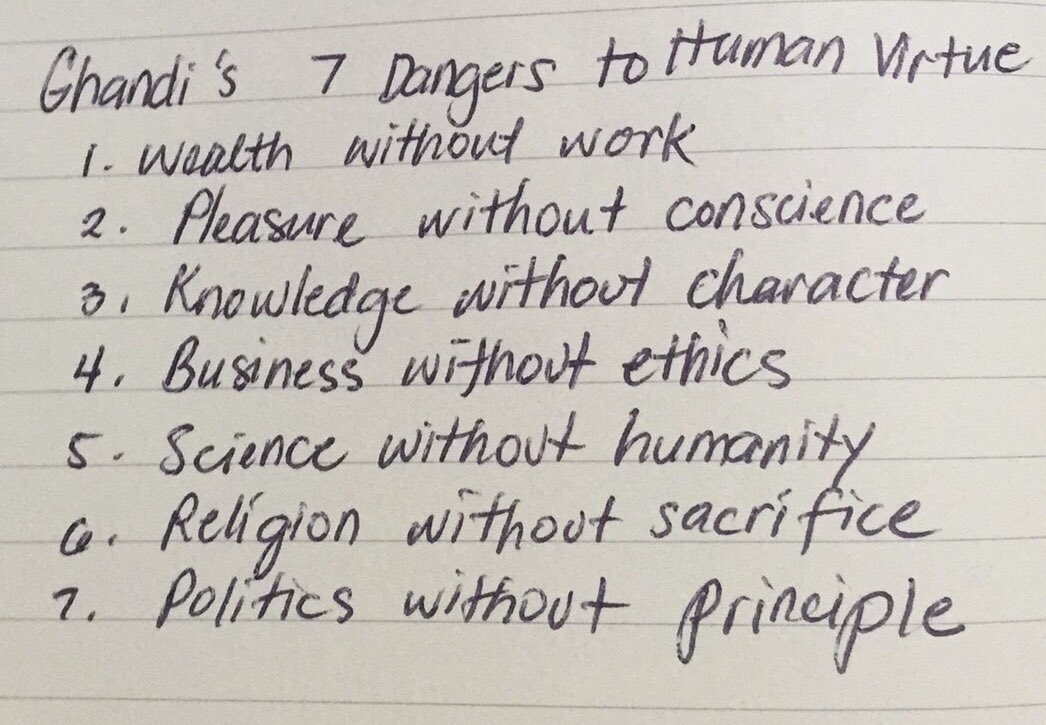 Ghandi's 7 Dangers to Human Virtue
1. Wealth without work
2. Pleasure without conscience
3. Knowledge without character
4. Business without ethics
5. Science without humanity
6. Religion without sacrifice
7. Politics without principle